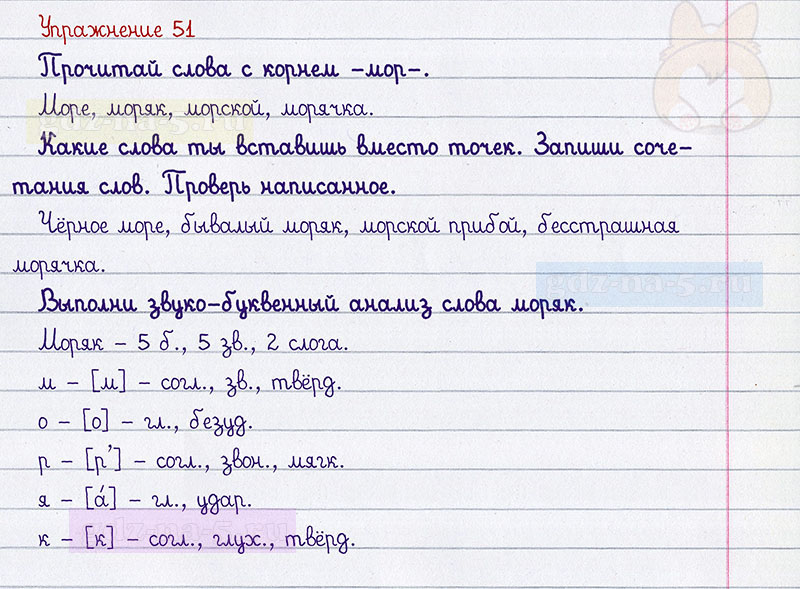 Упражнение 51
Прочитай слова с корнем –мор–.
Море, моряк, морской, морячка.
gdz-na-5.ru
Какие слова ты вставишь вместо точек. Запиши соче–
тания слов. Проверь написанное.
Чёрное море, бывалый моряк, морской прибой, бесстрашная
морячка.
gdz-na-5.ru
Выполни звуко–буквенный анализ слова моряк.
Моряк – 5 б., 5 зв., 2 слога.
м – [м] – согл., зв., твёрд.
о – [о] – гл., безуд.
р – [р’] – согл., звон., мягк.
я – [á] – гл., удар.
gdz-na-5.ru
к – [к] – согл., глух., твёрд.